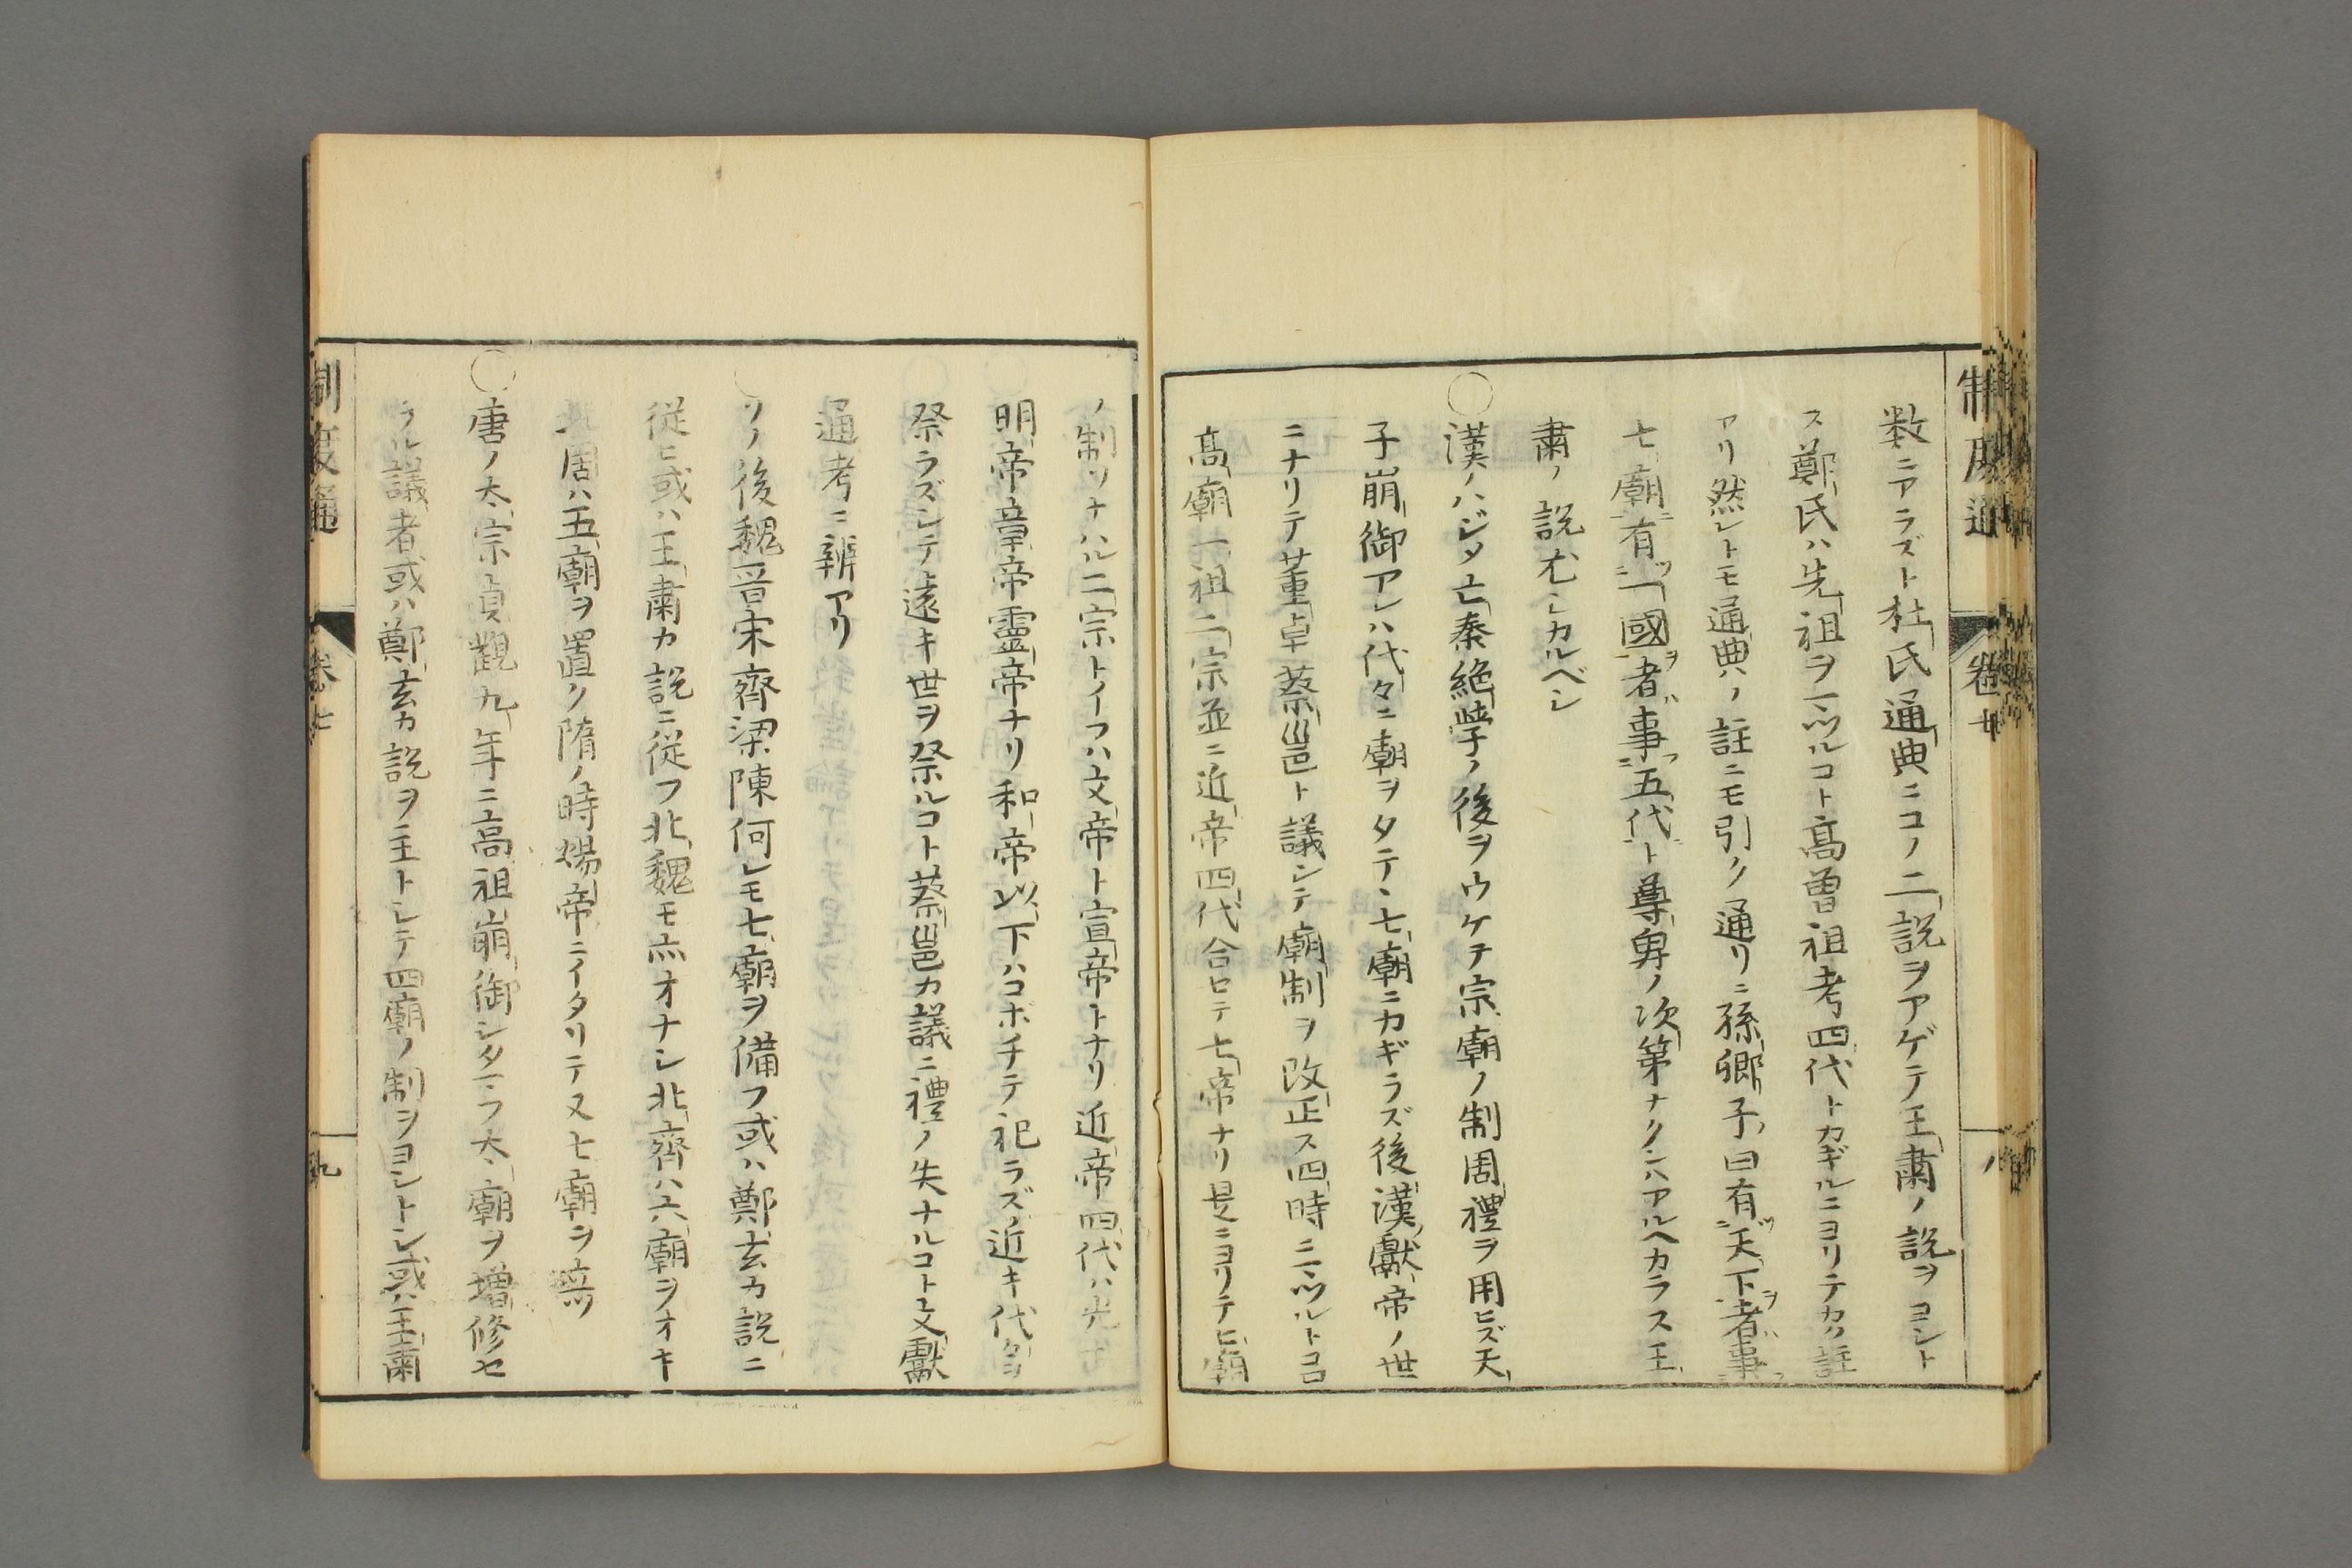 制度通
卷七
数ニアラズト杜氏通典ニコノ二説ヲアゲテ王肅ノ説ヲヨシト
ス鄭氏ハ先祖ヲ一ツルコト高曽祖考四代トカギルニヨリテカク註
アリ然レトモ通典ノ註ニモ引ク通リニ孫卿子曰有天下者事
七廟有一國者事五代ト尊卑ノ次第ナクンハアルヘカラス王
肅ノ説尤シカルベシ
○漢ノハジメ亡秦絶學ノ後ヲウケテ宗廟ノ制周禮ヲ用ヒズ天
子崩御アレハ代々ニ廟ヲタテ、七廟ニカギラズ後漢獻帝ノ世
ニナリテ董卓蔡邕ト議シテ廟制ヲ改正ス四時ニツルトコロ
高廟一祖二宗並ニ近帝四代合セテ七帝ナリ是ニヨリテ七廟
ノ制ソナハル二宗トイフハ文帝ト宣帝トナリ近帝四代ハ光武
明帝章帝靈帝ナリ和帝以下ハコボチテ祀ラズ近キ代々ヲ
祭ラズシテ遠キ世ヲ祭ルコト蔡邕カ議ニ禮ノ失ナルコト文獻
通考ニ辨アリ
○ソノ後魏晋宋齊梁陳何レモ七廟ヲ備フ或ハ鄭玄カ説ニ
従ヒ或ハ王肅カ説ニ従フ北魏モ亦オナシ北齊ハ六廟ヲオキ
北周ハ五廟ヲ置ク隋ノ時煬帝ニイタリテ又七廟ヲ立ツ
○唐ノ太宗貞觀九年ニ高祖崩御シタマフ太廟ヲ増修セ
ラル議者或ハ鄭玄カ説ヲ主トシテ四廟ノ制ヲヨシトシ或ハ王肅
制度通
卷七
九